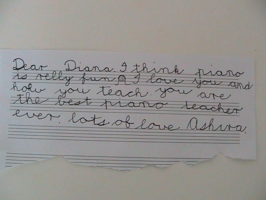 Dear Diana. I think piano
is relly fun. I love you and
how you teach. you are
the best piano teacher
ever. lots of love Ashira.